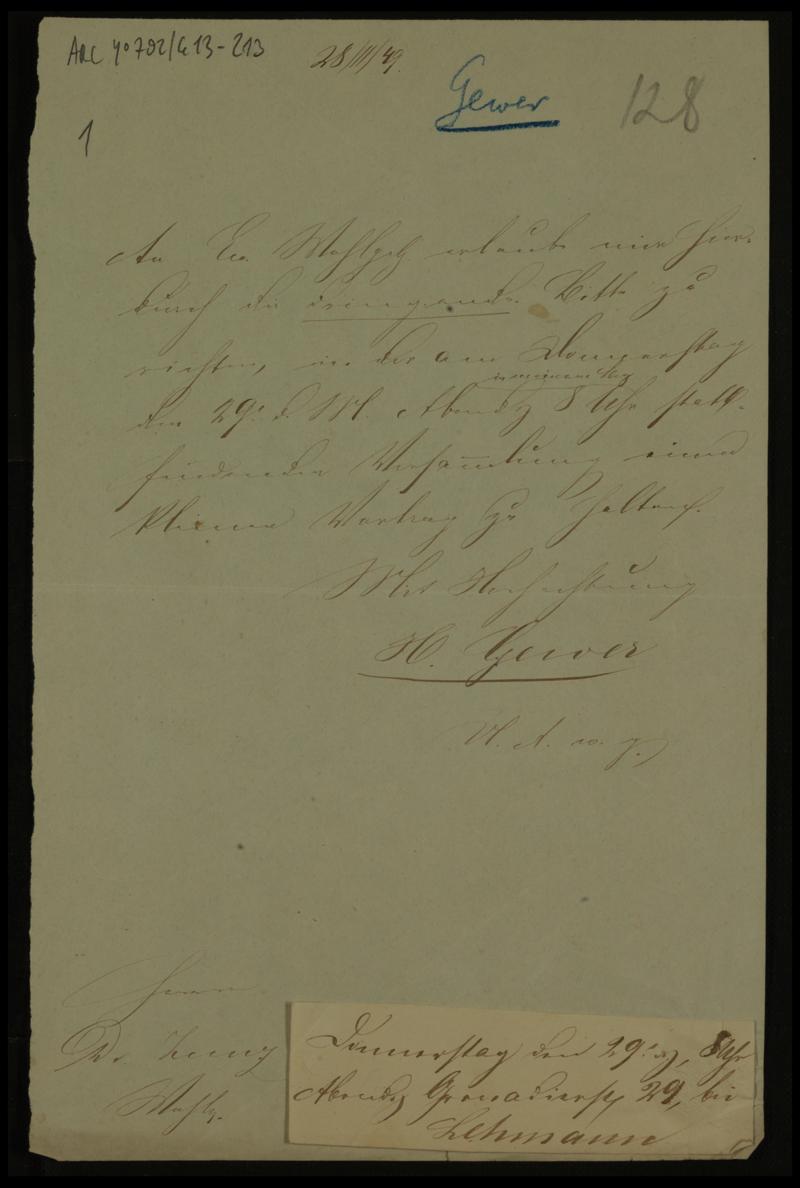 ARC 4° 792/G 13-213
28/III/49.
Gewer
128
1
An Ew. Wohlgeb. erlaube mir hier-
durch die dringende Bitte zu
richten, in der am Donnerstag
den 29. d. M. Abends 8 Uhr statt-
findenden Versammlung einen
kleinen Vortrag zu halten.
Mit Hochachtung
H. Gewer
U. A. w. g.
Herrn
Dr Zunz
Wohlg.
Donnerstag den 29. 8 Uhr
Abends Grenadierstr 29, bei
Lehmann